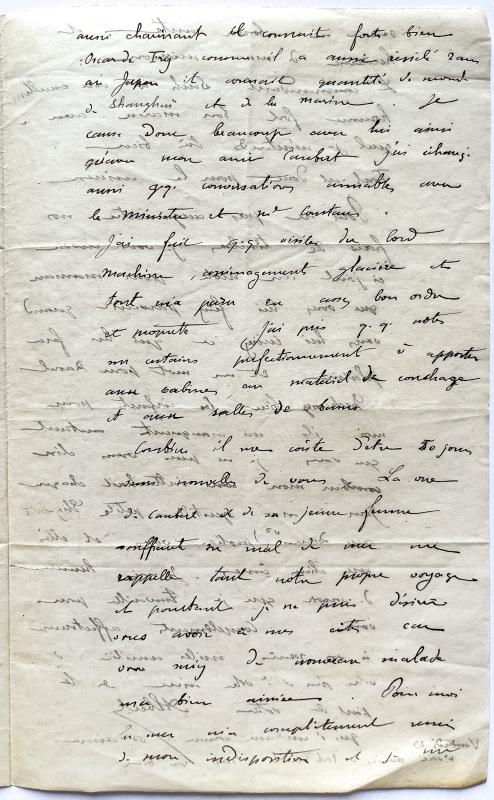 aussi charmant il connait fort bien
Oscar de comme il a aussi résidé 2 ans
au Japon il connait quantité de monde
de Shanghai et de la marine. Je
cause donc beaucoup avec lui ainsi
qu'avec mon ami Caubert j'ai échangé
aussi qq. conversations aimables avec
le Ministre et Me Constans.
J'ai fait qqq visites du bord
machine, aménagement glacière etc
tout m'a paru en assez bon ordre
et propreté j'ai pris q.q notes
sur certains perfectionnements à apporter
aux cabines, au matériel de couchage
et aux salles de bains
Combien il me coûte d'être 50 jours
sans nouvelles de vous. La vue
de Caubert et de sa jeune femme
souffrant du mal de mer me
rappelle tant notre propre voyage
et pourtant je ne puis désirer
vous avoir à mes côtés car
vous de nouveau malade
ma bien aimée. Pour moi
la mer m'a complètement remis
de mon indisposition et je